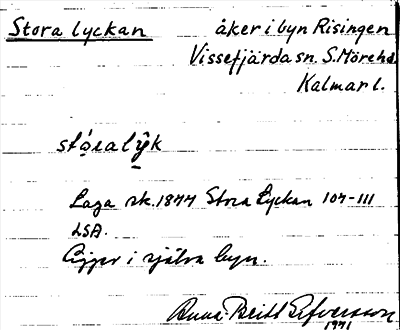 Stora lyckan åker i byn Risingen
Vissefjärda sn. S. Möre hd.
Kalmar l.
stóralỳk
Laga sk. 1877 Stora Lyckan 107-111
LSA.
Ligger i själva byn.
Anna-Britt Elfversson
1971